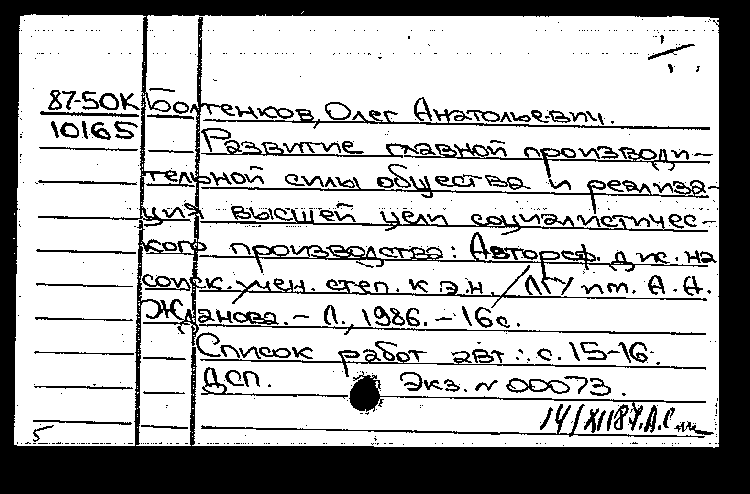 87-50К Болтенков, Олег Анатольевич.
10165
Развитие главной производи-
тельной силы общества и реализа-
ция высшей цели социалистичес-
кого производства: Автореф. дис. на
соиск. учен. степ. к.э.н. / ЛГУ им. А.А.
Жданова. – Л., 1986. – 16 с.
Список работ авт.: с. 15-16.
ДСП. Экз. N 00073.
14/XII87.
5